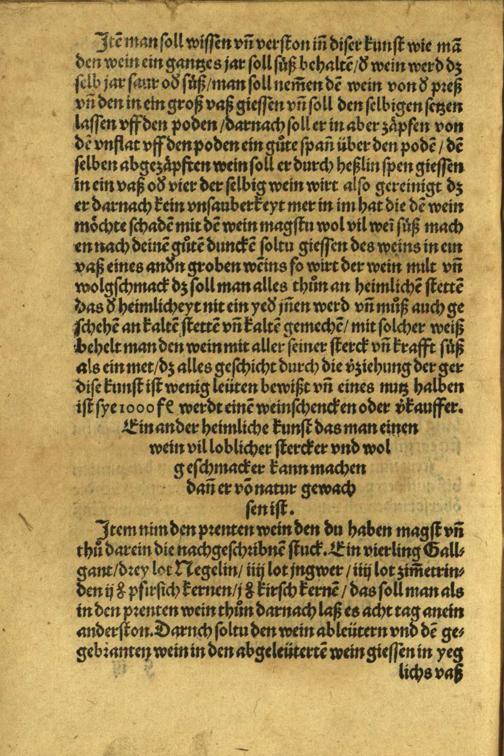 Jtē man soll wissen vñ verston in̄ diser kunst wie mā
den wein ein gantzes jar soll süß behaltē/d̄ wein werd dz
selb jar saur od̄ süß/man soll nem̄en dē wein von d̄ preß
vñ den in ein groß vaß giessen vñ soll den selbigen setzen
lassen vff den poden/darnach soll er in aber zäpfen von
dē vnflat vff den poden ein gůte span̄ über den podē/dē
selben abgezäpften wein soll er durch heßlin spen giessen
in ein vaß od̄ vier der selbig wein wirt also gereinigt dz
er darnach kein vnsauberkeyt mer in im hat die dē wein
möchte schadē mit dē wein magstu wol vil wei᷑ süß mach
en nach deinē gůtē dunckē soltu giessen des weins in ein
vaß eines and̄n groben weins so wirt der wein milt vñ
wolgschmack dz soll man alles thůn an heimlichē stettē
das d̄ heimlicheyt nit ein yed̄ jn̄en werd vñ můß auch ge
schehen an kaltē stettē vñ kaltē gemechē/mit solcher weiß
behelt man den wein mit aller seiner sterck vñ krafft süß
als ein met/dz alles geschicht durch die v̄ziehung der ger
dise kunst ist wenig leüten bewißt vñ eines nutz halben
ist sye 1000 fl werdt einē weinschencken oder v̄kauffer.
Ein ander heimliche kunst das man einen
wein vil loblicher stercker vnd wol
geschmacker kann machen
dan̄ er vō natur gewach
sen ist.
Jtem nim den prenten wein den du haben magst vñ
thů darein die nachgeschribnē stuck. Ein vierling Gall-
gant/drey lot Negelin/iiij lot jngwer/iiij lot zim̄etrin-
den ij ℥ pfirsich kernen/j ℥ kirsch kernē/das soll man als
in den prenten wein thůn darnach laß es acht tag an ein
anderston. Darnch soltu den wein ableütern vnd dē ge-
gebranten wein in den abgeleütertē wein giessen in yeg
lichs vaß